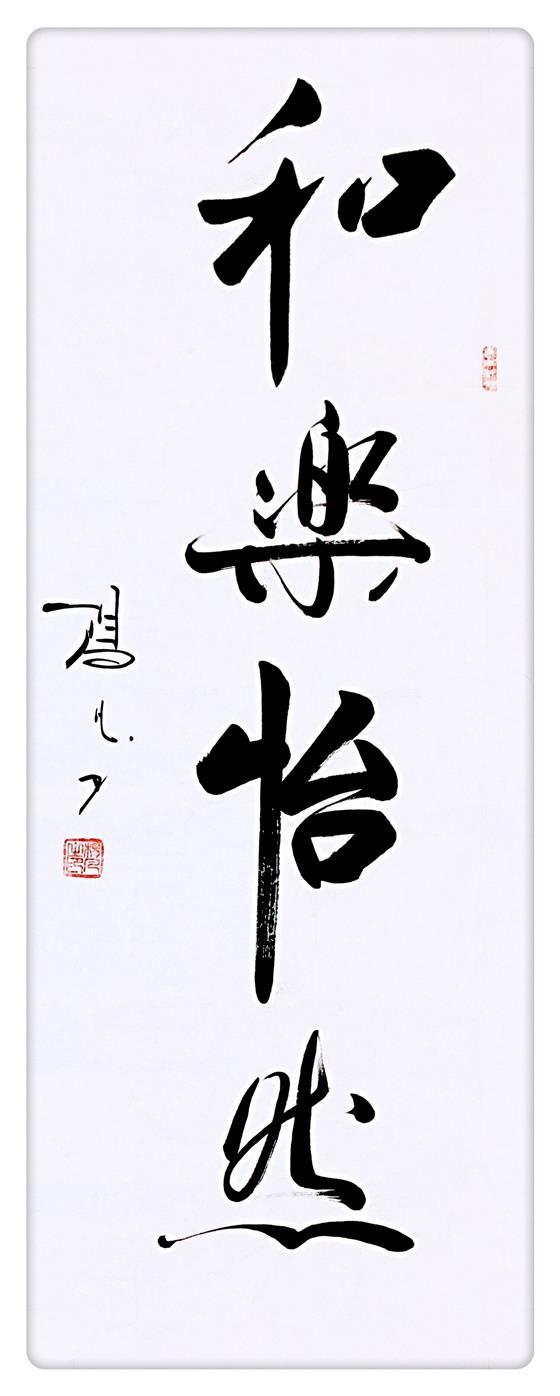 和樂怡然